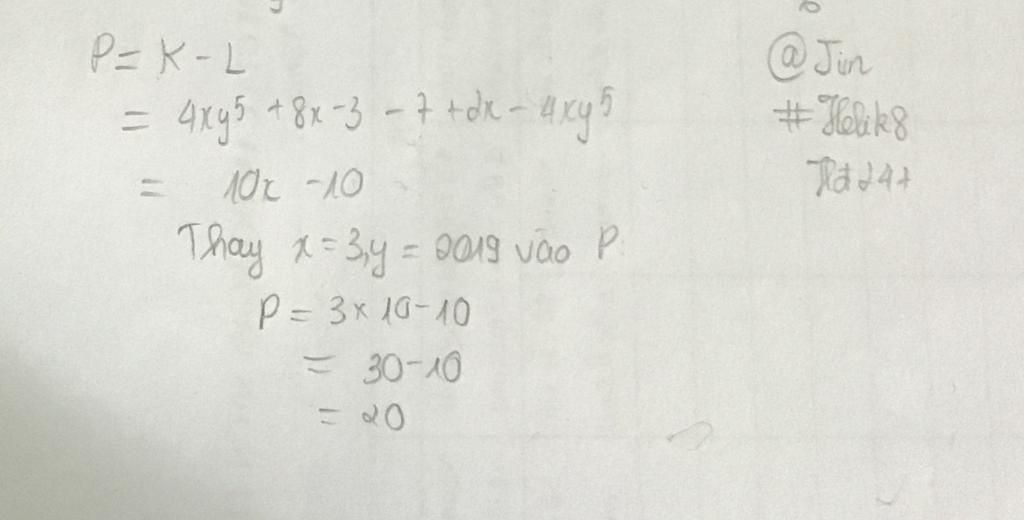 P = K - L
= 4xy⁵ + 8x - 3 - 7 + 2x - 4xy⁵
= 10x - 10
Thay x = 3, y = 2019 vào P:
P = 3 x 10 - 10
= 30 - 10
= 20
@Jin